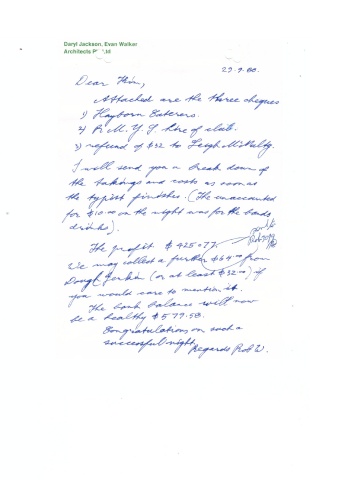 Daryl Jackson, Evan Walker
Architects P
29.9.80.
Dear
Attached are the three cheques
1) Hayborn Caterers.
2) R.M.Y.S hire of club.
3) refund of $32 to Leigh
I will send you a break down of
the takings and costs as soon as
the typist finishes. (The unaccounted
for $10.00 on the night was for the bands
drinks).
The profit $425.77.
We may collect a further $64.00 from
Doug (or at least $32.00) if
you would care to mention it.
The bank balance will now
be a healthy $579.58.
Congratulations on such a
successful night,
Regards Rob W.